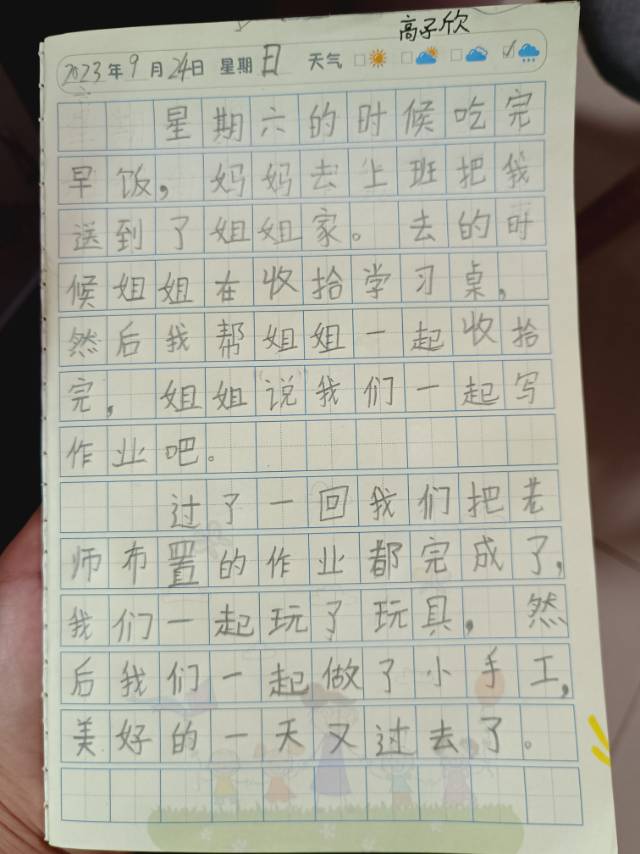 高子欣
2023年9月24日 星期日 天气
星期六的时候吃完
早饭，妈妈去上班把我
送到了姐姐家。去的时
候姐姐在收拾学习桌，
然后我帮姐姐一起收拾
完，姐姐说我们一起写
作业吧。
过了一回我们把老
师布置的作业都完成了，
我们一起玩了玩具，然
后我们一起做了小手工，
美好的一天又过去了。